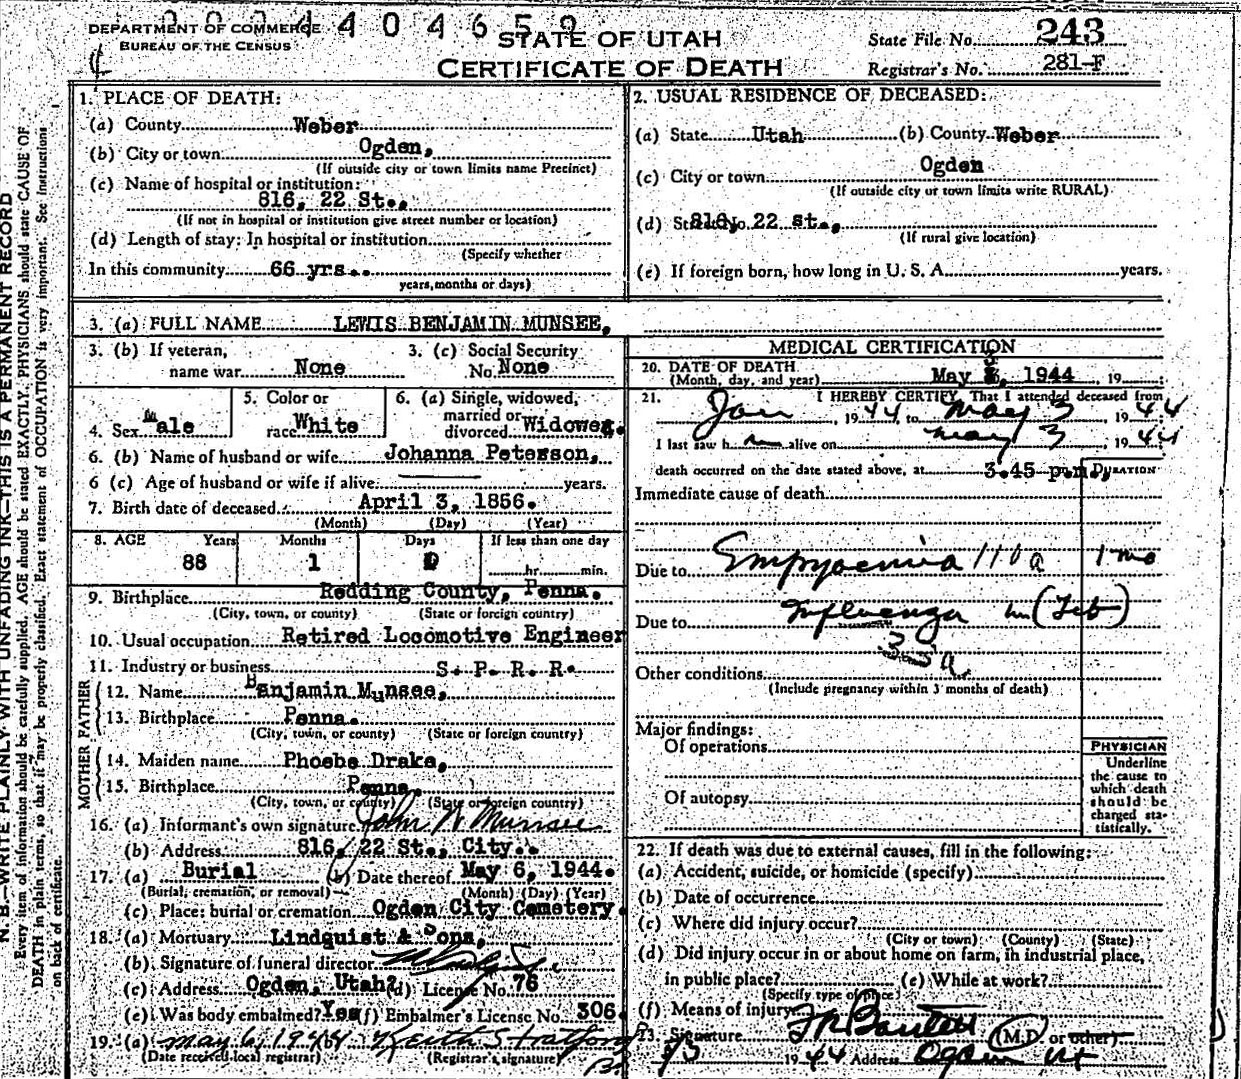 0 0 0 4 4 4 0 4 6 5 9
DEPARTMENT OF COMMERCE
BUREAU OF THE CENSUS
STATE OF UTAH
CERTIFICATE OF DEATH
State File No. 243
Registrar's No. 281-F
N. B.—WRITE PLAINLY WITH UNFADING INK—THIS IS A PERMANENT RECORD
Every item of information should be carefully supplied. AGE should be stated EXACTLY. PHYSICIANS should state CAUSE OF
DEATH in plain terms, so that it may be properly classified. Exact statement of OCCUPATION is very important. See instructions
on back of certificate.
1. PLACE OF DEATH:
(a) County Weber
(b) City or town Ogden,
(If outside city or town limits name Precinct)
(c) Name of hospital or institution:
816, 22 St.,
(If not in hospital or institution give street number or location)
(d) Length of stay: In hospital or institution
(Specify whether
In this community 66 yrs.
years, months or days)
2. USUAL RESIDENCE OF DECEASED:
(a) State Utah (b) County Weber
(c) City or town Ogden
(If outside city or town limits write RURAL)
(d) Street No. 816, 22 st.,
(If rural give location)
(e) If foreign born, how long in U. S. A. years.
3. (a) FULL NAME LEWIS BENJAMIN MUNSEE,
3. (b) If veteran,
name war None
3. (c) Social Security
No. None
4. Sex Male
5. Color or
race White
6. (a) Single, widowed,
married or
divorced Widowed.
6. (b) Name of husband or wife Johanna Peterson,
6 (c) Age of husband or wife if alive years.
7. Birth date of deceased April 3, 1856.
(Month) (Day) (Year)
8. AGE Years Months Days If less than one day
88 1 0 hr. min.
9. Birthplace Redding County, Penna.
(City, town, or county) (State or foreign country)
10. Usual occupation Retired Locomotive Engineer
11. Industry or business S. P. R. R.
FATHER
12. Name Benjamin Munsee,
13. Birthplace Penna.
(City, town, or county) (State or foreign country)
MOTHER
14. Maiden name Phoebe Drake,
15. Birthplace Penna.
(City, town, or county) (State or foreign country)
16. (a) Informant's own signature John W Munsee
(b) Address 816, 22 St., City.
17. (a) Burial (b) Date thereof May 6, 1944.
(Burial, cremation, or removal) (Month) (Day) (Year)
(c) Place: burial or cremation Ogden City Cemetery.
18. (a) Mortuary Lindquist & Sons,
(b) Signature of funeral director
(c) Address Ogden, Utah. (d) License No. 76
(e) Was body embalmed? Yes (f) Embalmer's License No. 306.
19. (a) May 6, 1944 (b) Keith Stratford
(Date received local registrar) (Registrar's signature)
MEDICAL CERTIFICATION
20. DATE OF DEATH
(Month, day, and year) May 3, 1944 , 19
21. I HEREBY CERTIFY, That I attended deceased from
Jan , 1944 to May 3 , 1944
I last saw h m alive on May 3 , 1944
death occurred on the date stated above, at 3.45 p.m., DURATION
Immediate cause of death
Due to Empyaemia 110a 1 mo
Due to Influenza in (Feb)
33a
Other conditions
(Include pregnancy within 3 months of death)
Major findings:
Of operations
Of autopsy
PHYSICIAN
Underline
the cause to
which death
should be
charged sta-
tistically.
22. If death was due to external causes, fill in the following:
(a) Accident, suicide, or homicide (specify)
(b) Date of occurrence
(c) Where did injury occur?
(City or town) (County) (State)
(d) Did injury occur in or about home on farm, in industrial place,
in public place? (e) While at work?
(Specify type of place)
(f) Means of injury
23. Signature (M.D. or other)
5/3 1944 Address Ogden Ut